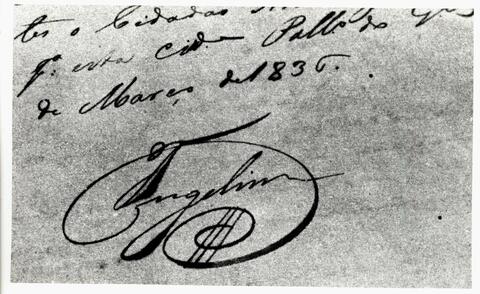 tes o Cidadão
q.^e esta Cid.^e Pall.^o do
de Março de 1836.
Angelim